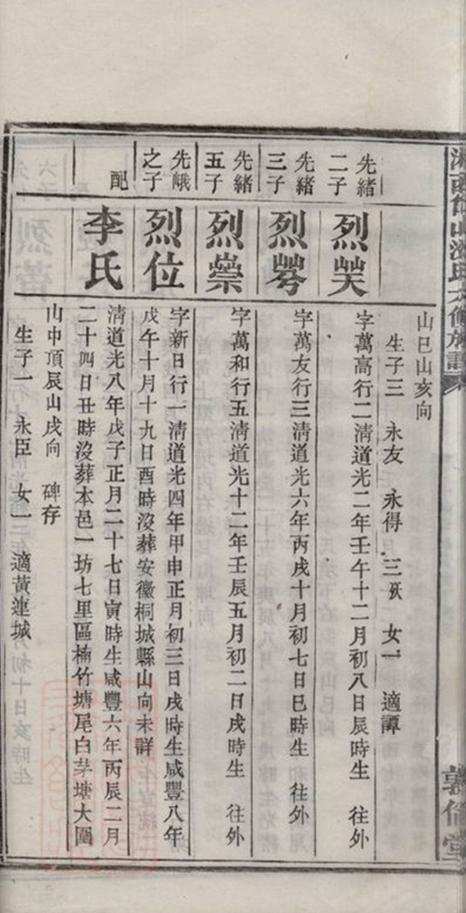 山巳山亥向
生子三 永友 永得 三殀 女一 適譚
先緒二子
烈
字萬高行二清道光二年壬午十二月初八日辰時生 往外
先緒三子
烈
字萬友行三清道光六年丙戌十月初七日巳時生 往外
先緒五子
烈
字萬和行五清道光十二年壬辰五月初二日戌時生 往外
先峨之子
烈位
字新日行一清道光四年甲申正月初三日戌時生咸豐八年
戊午十月十九日酉時沒葬安徽桐城縣山向未詳
配
李氏
清道光八年戊子正月二十七日寅時生咸豐六年丙辰二月
二十四日丑時沒葬本邑一坊七里區楠竹塘尾白茅塘大圓
山中項辰山戌向 碑存
生子一 永臣 女一 適黃連城
敦倫堂